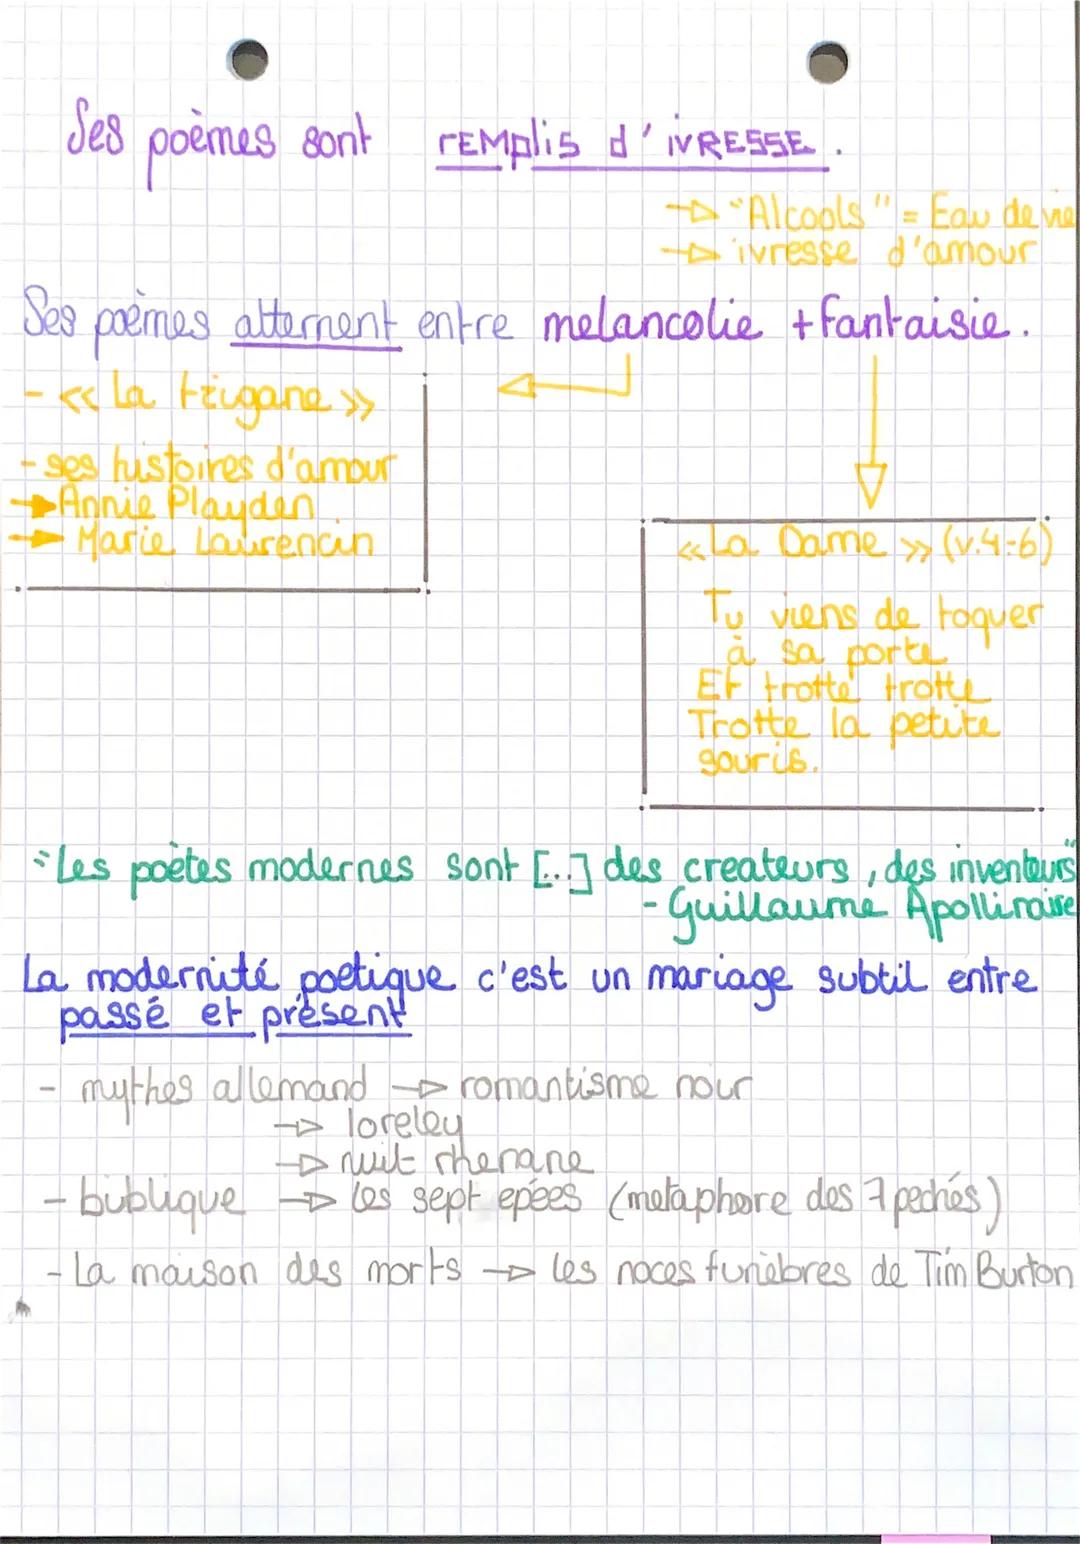 Ses poèmes sont remplis d'ivresse.
→ "Alcools" = Eau de vie
→ ivresse d'amour
Ses poèmes alternent entre melancolie + fantaisie.
- « La tzigane »
- ses histoires d'amour
→ Annie Playden
→ Marie Laurencin
« La Dame » (v.4-6)
Tu viens de toquer
à sa porte
Et trotte trotte
Trotte la petite
souris.
"Les poètes modernes sont [...] des createurs, des inventeurs"
- Guillaume Apollinaire
La modernité poetique c'est un mariage subtil entre
passé et présent
- mythes allemand → romantisme noir
→ loreley
→ nuit rhenane
- biblique → les sept epées (metaphore des 7 pechés)
- La maison des morts → les noces funèbres de Tim Burton